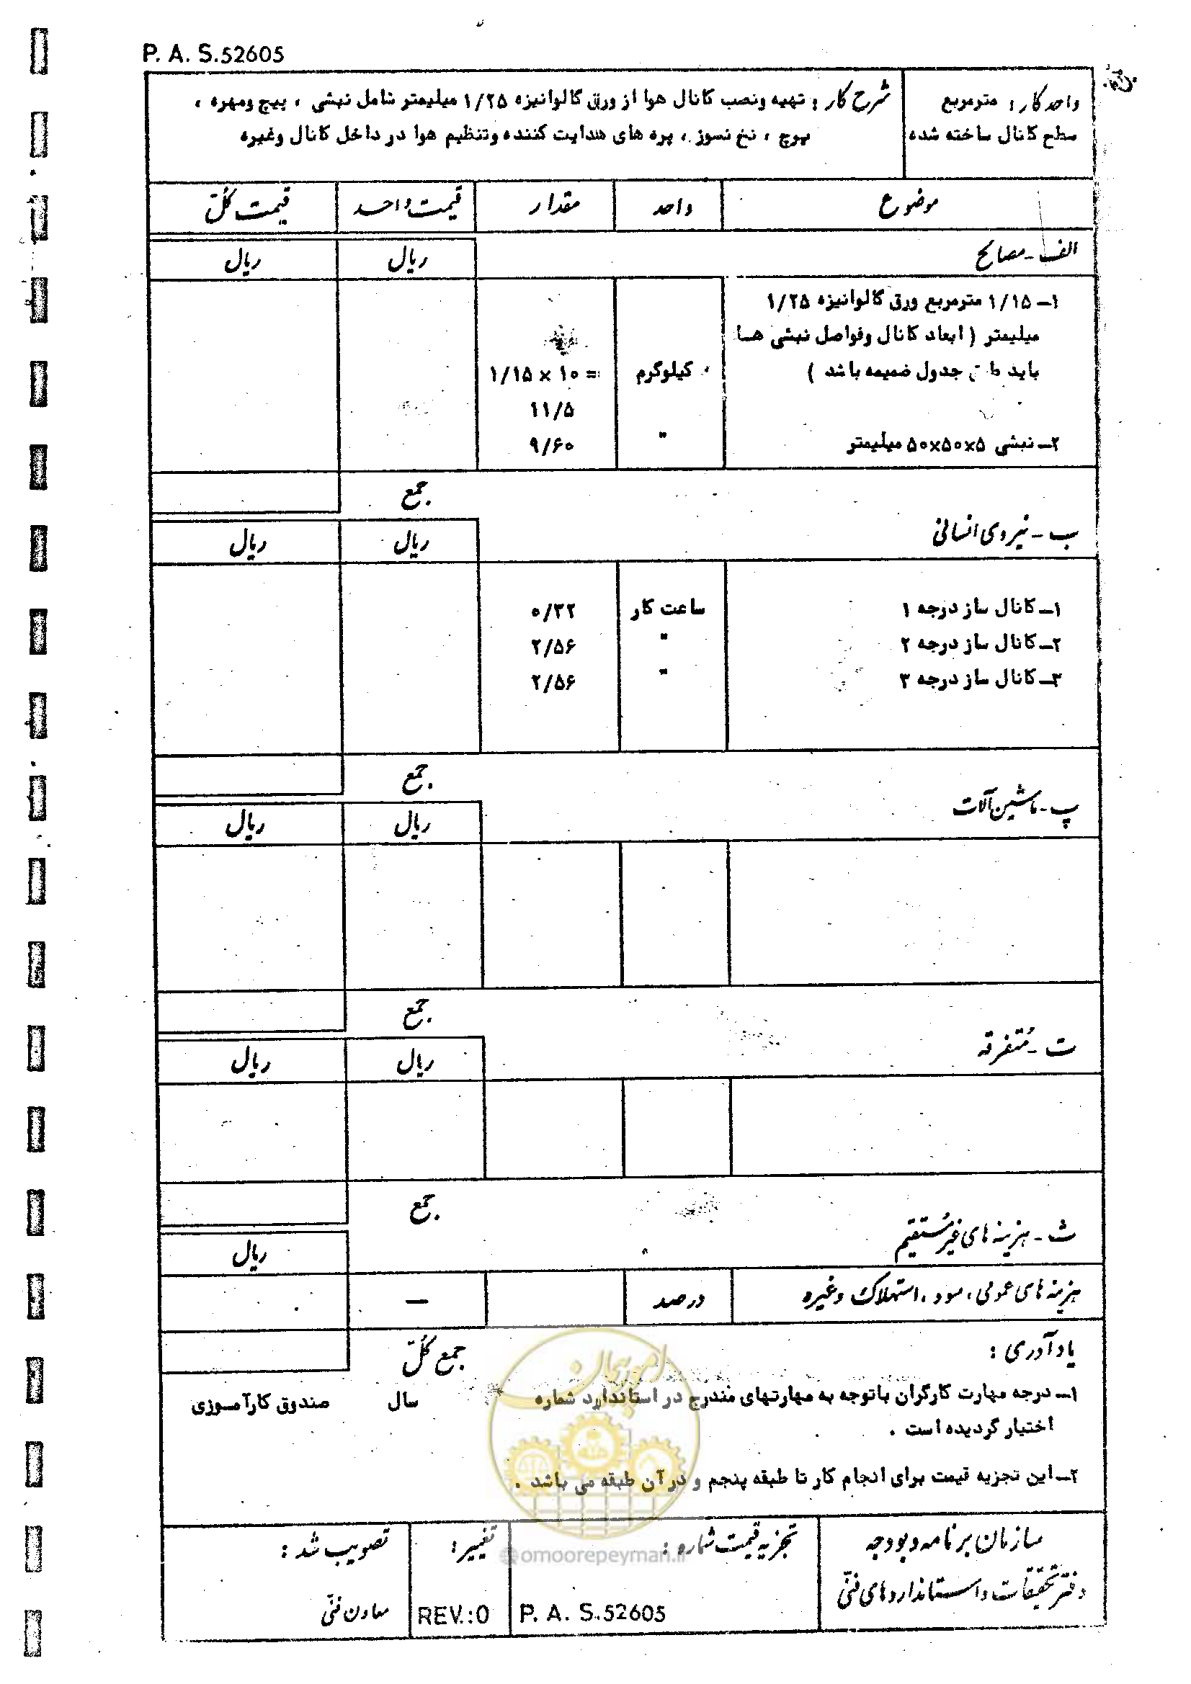 P. A. S.52605
واحد کار : مترمربع
سطح کانال ساخته شده
شرح کار : تهیه ونصب کانال هوا از ورق گالوانیزه ۱/۲۵ میلیمتر شامل نبشی ، پیچ ومهره ،
پرچ ، نخ نسوز ، پره های هدایت کننده وتنظیم هوا در داخل کانال وغیره
موضوع واحد مقدار قیمت واحد قیمت کل
الف - مصالح ریال ریال
۱- ۱/۱۵ مترمربع ورق گالوانیزه ۱/۲۵
میلیمتر ( ابعاد کانال وفواصل نبشی هسا
باید طبق جدول ضمیمه باشد ) کیلوگرم ۱/۱۵ × ۱۰ =
۱۱/۵
۲- نبشی ۵×۵۰×۵۰ میلیمتر " ۹/۶۰
جمع
ب - نیروی انسانی ریال ریال
۱- کانال ساز درجه ۱ ساعت کار ۰/۳۲
۲- کانال ساز درجه ۲ " ۲/۵۶
۳- کانال ساز درجه ۳ " ۲/۵۶
جمع
پ - ماشین آلات ریال ریال
جمع
ت - متفرقه ریال ریال
جمع
ث - هزینه های غیرمستقیم ریال
هزینه های عمومی ، سود ، استهلاک وغیره درصد —
یادآوری : جمع کل
۱- درجه مهارت کارگران باتوجه به مهارتهای مندرج در استاندارد شماره سال صندوق کارآمسوزی
اختیار گردیده است .
۲- این تجزیه قیمت برای انجام کار تا طبقه پنجم و در آن طبقه می باشد .
امور پیمان
@omoorepeyman.ir
سازمان برنامه و بودجه
دفتر تحقیقات و استانداردهای فنی
تجزیه قیمت شماره :
P. A. S.52605
تغییر :
REV.:0
تصویب شد :
معاون فنی